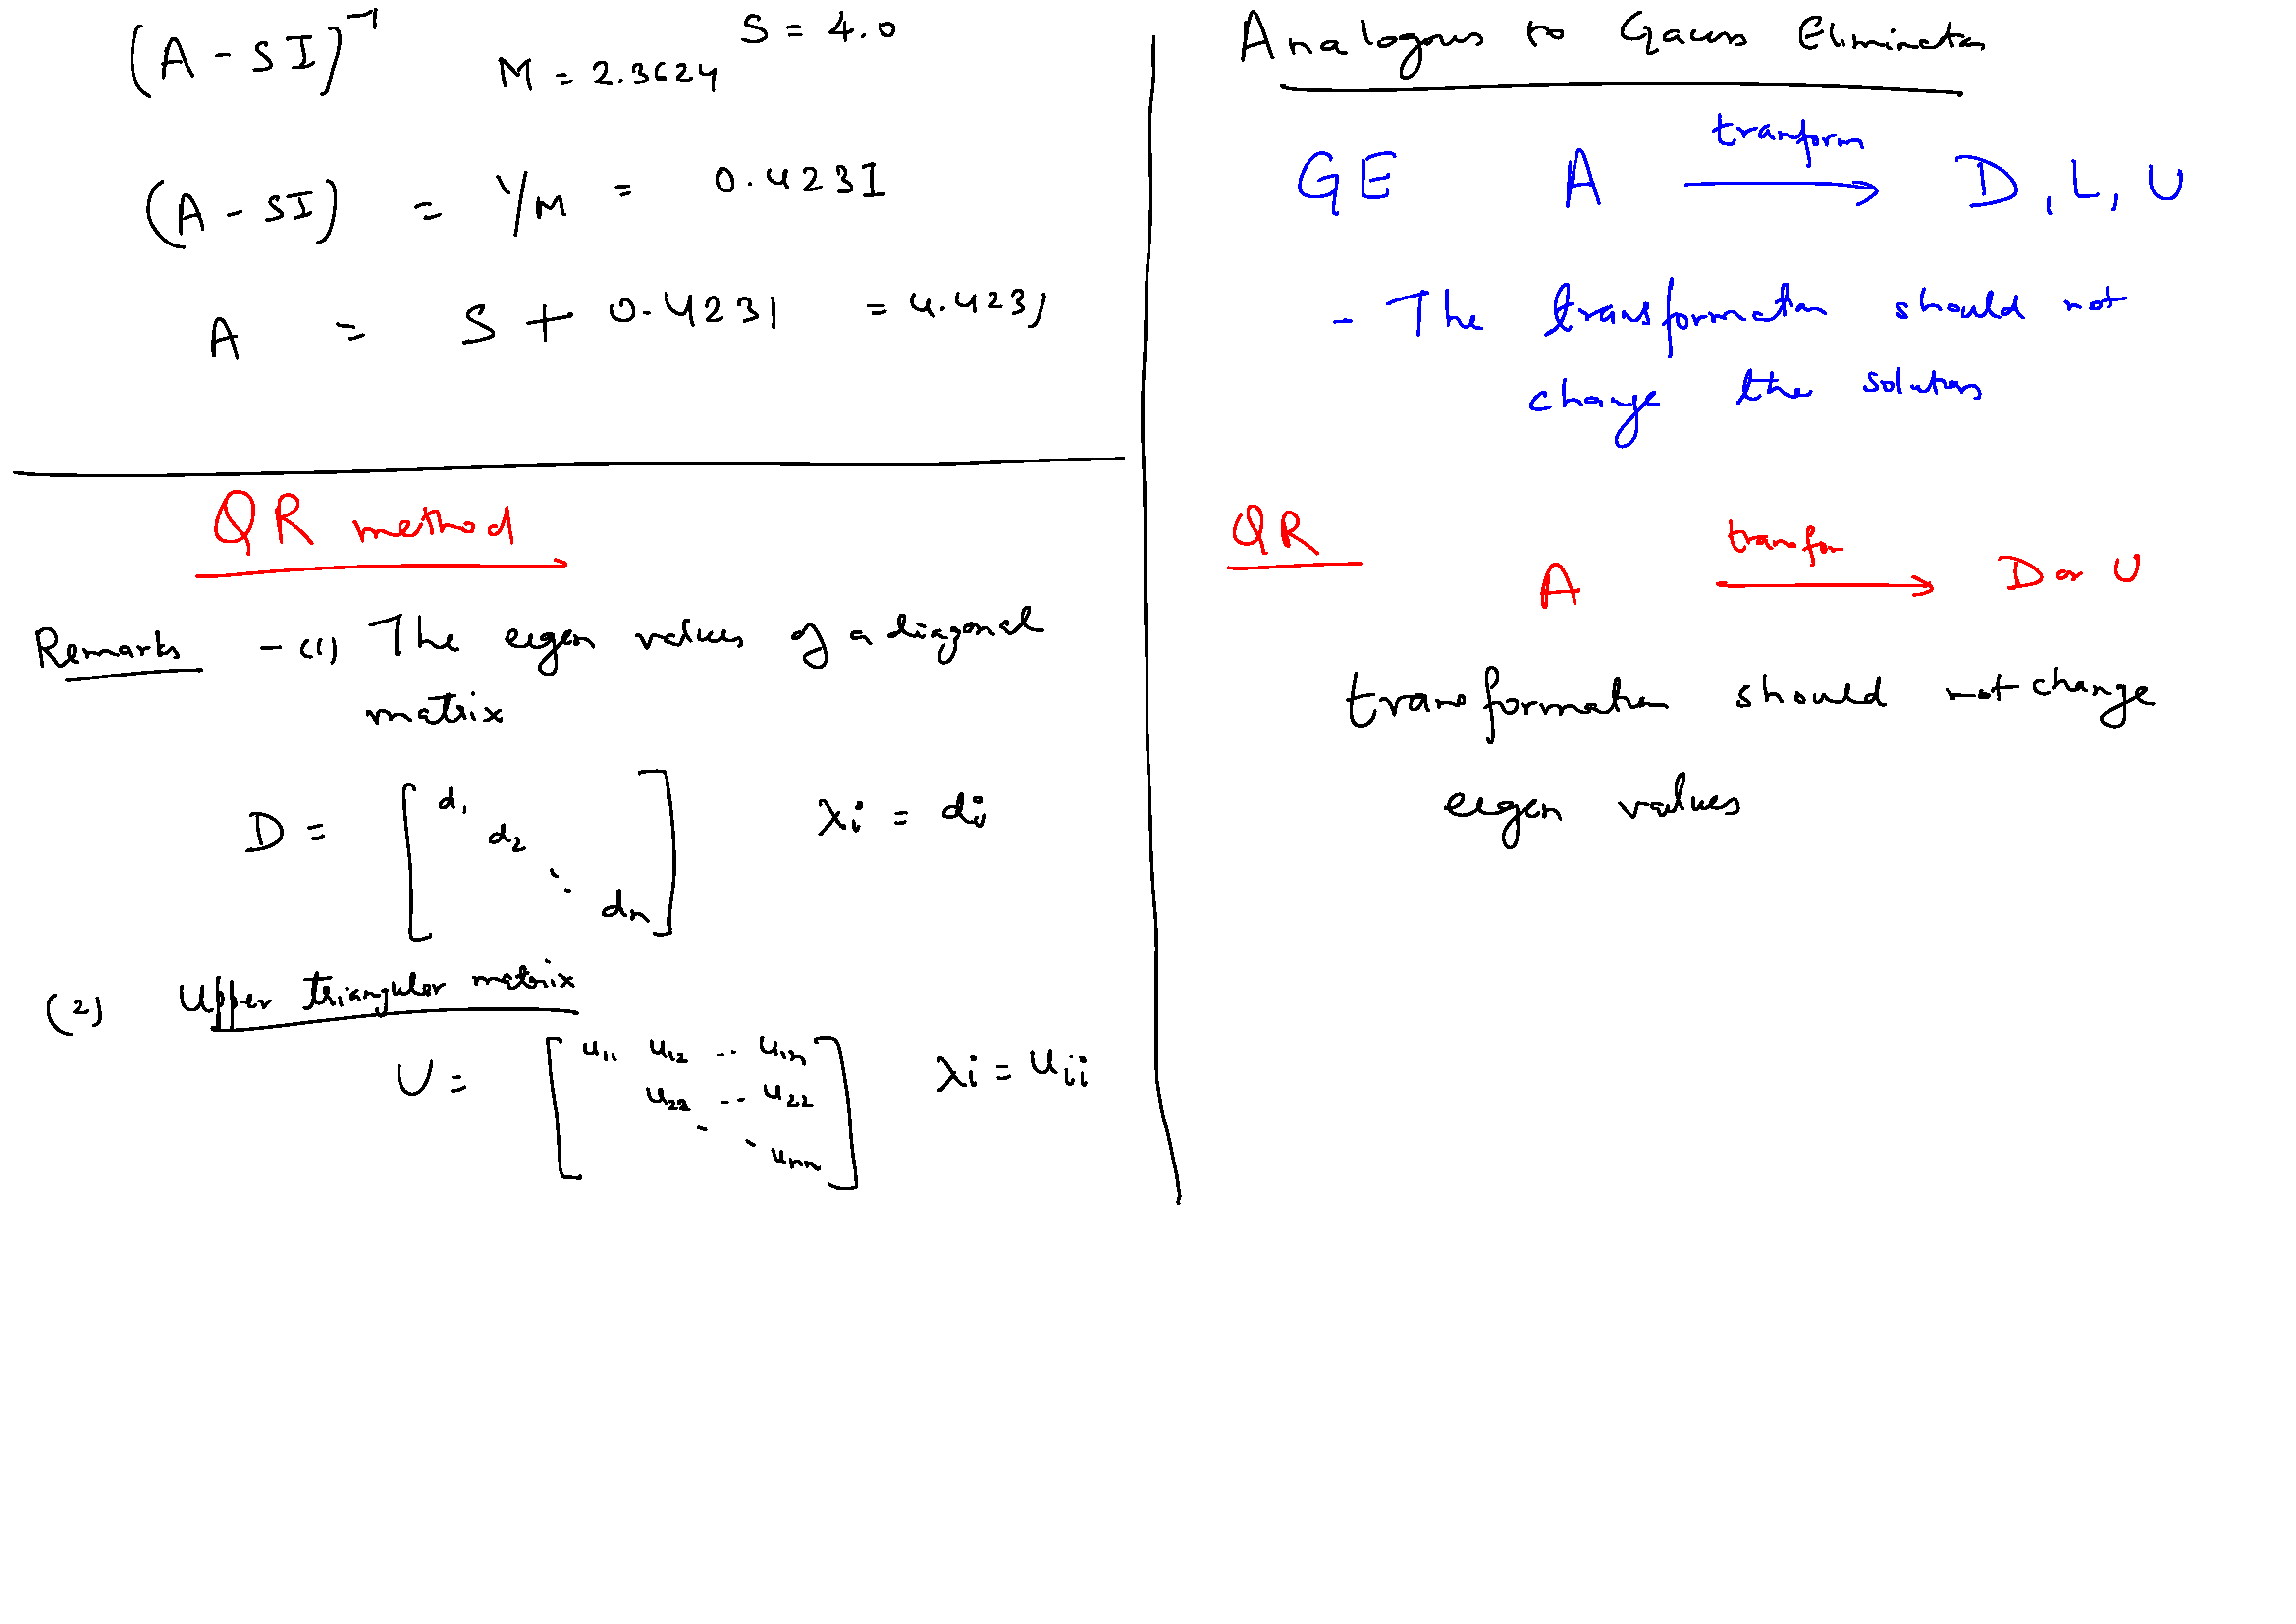 (A - sI)⁻¹ M = 2.3624 S = 4.0
(A - sI) = 1/M = 0.4231
A = S + 0.4231 = 4.4231
QR method
Remarks - (1) The eigen values of a diagonal
matrix
D = [ d₁ d₂ ⋱ dₙ ] λi = di
(2) Upper triangular matrix
U = [ u₁₁ u₁₂ .. u₁ₙ
u₂₂ .. u₂₂
⋱ uₙₙ ] λi = uii
Analogous to Gauss Elimination
GE A transform → D, L, U
- The transformation should not
change the solutions
QR A → D or U
transformation should not change
eigen values